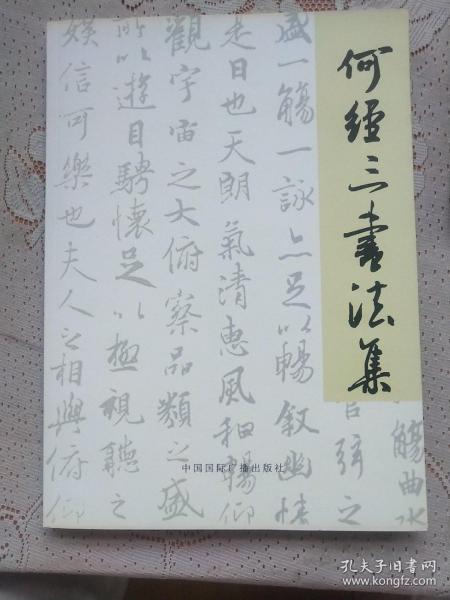 何經三書法集
觴曲水
管弦之
盛一觴一詠亦足以暢敘幽情
是日也天朗氣清惠風和暢仰
觀宇宙之大俯察品類之盛
所以遊目騁懷足以極視聽之
娛信可樂也夫人之相與俯仰
中国国际广播出版社
孔夫子旧书网
www.kongfz.com